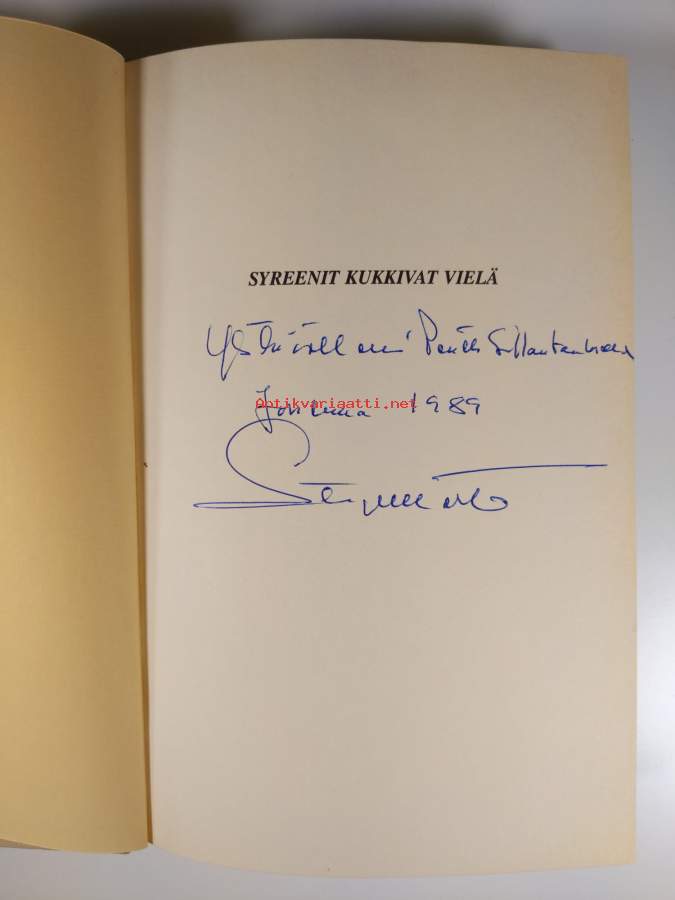 SYREENIT KUKKIVAT VIELÄ
Ystävälleni Pentti Sillantaukselle
Jouluna 1989
antikvariaatti.net